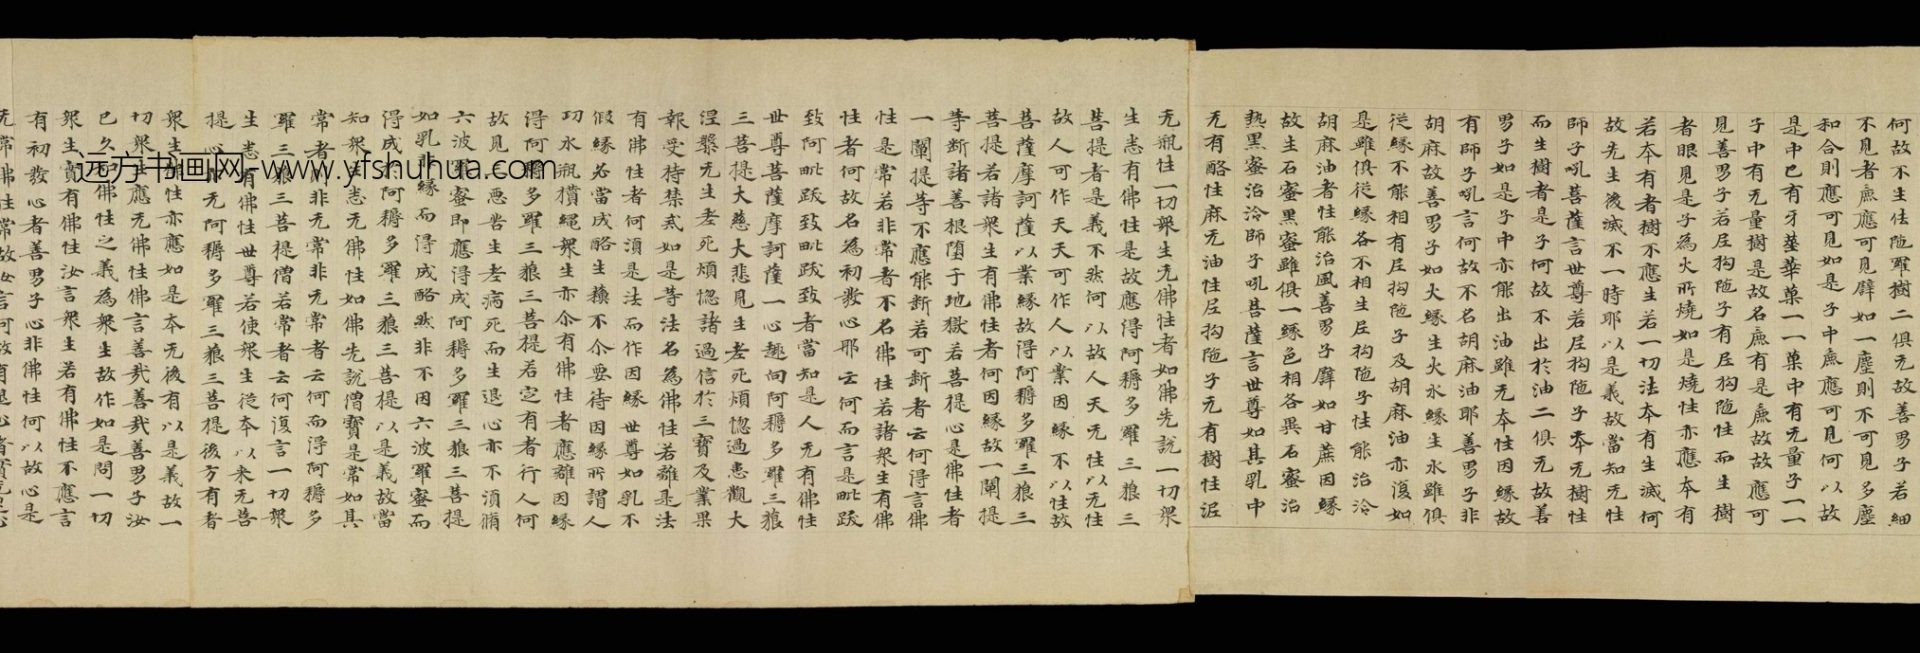 何故不生佉陁羅樹二俱无故善男子若細
不見者麁應可見譬如一塵則不可見多塵
和合則應可見如是子中麁應可見何以故
是中已有牙莖華菓一一菓中有无量子一一
子中有无量樹是故名麁有是麁故故應可
見善男子若尼拘陁子有尼拘陁性而生樹
者眼見是子為火所燒如是燒性亦應本有
若本有者樹不應生若一切法本有生滅何
故先生後滅不一時耶以是義故當知无性
師子吼菩薩言世尊若尼拘陁子本无樹性
而生樹者是子何故不出於油二俱无故善
男子如是子中亦能出油雖无本性因緣故
有師子吼言何故不名胡麻油耶善男子非
胡麻故善男子如火緣生火水緣生水雖俱
從緣不能相有尼拘陁子及胡麻油亦復如
是雖俱從緣各不相生尼拘陁子性能治冷
胡麻油者性能治風善男子譬如甘蔗因緣
故生石蜜黑蜜雖俱一緣色相各異石蜜治
熱黑蜜治冷師子吼菩薩言世尊如其乳中
无有酪性麻无油性尼拘陁子无有樹性泥
无瓶性一切衆生无佛性者如佛先說一切衆
生悉有佛性是故應得阿耨多羅三藐三
菩提者是義不然何以故人天无性以无性
故人可作天天可作人以業因緣不以性故
菩薩摩訶薩以業緣故得阿耨多羅三藐三
菩提若諸衆生有佛性者何因緣故一闡提
等斷諸善根墮于地獄若菩提心是佛性者
一闡提等不應能斷若可斷者云何得言佛
性是常若非常者不名佛性若諸衆生有佛
性者何故名為初發心耶云何而言是毗跋
致阿毗跋致毗跋致者當知是人无有佛性
世尊菩薩摩訶薩一心趣向阿耨多羅三藐
三菩提大慈大悲見生老死煩惚過患觀大
涅槃无生老死煩惚諸過信於三寶及業果
報受持禁戒如是等法名為佛性若離是法
有佛性者何須是法而作因緣世尊如乳不
假緣必當成酪生蘇不尒要待因緣所謂人
功水瓶攢繩衆生亦尒有佛性者應離因緣
得阿耨多羅三藐三菩提若定有者行人何
故見三惡苦生老病死而生退心亦不須脩
六波羅蜜即應得成阿耨多羅三藐三菩提
如乳非緣而得成酪然非不因六波羅蜜而
得成阿耨多羅三藐三菩提以是義故當
知衆生悉无佛性如佛先說僧寶是常如其
常者則非无常非无常者云何而得阿耨多
羅三藐三菩提僧若常者云何復言一切衆
生悉有佛性世尊若使衆生從本以來无菩
提心亦无阿耨多羅三藐三菩提後方有者
衆生佛性亦應如是本无後有以是義故一
切衆生應无佛性佛言善哉善哉善男子汝
已久知佛性之義為衆生故作如是問一切
衆生實有佛性汝言衆生若有佛性不應言
有初發心者善男子心非佛性何以故心是
无常佛性常故汝言何故有退心者實无退心
远方书画网-www.yfshuhua.com